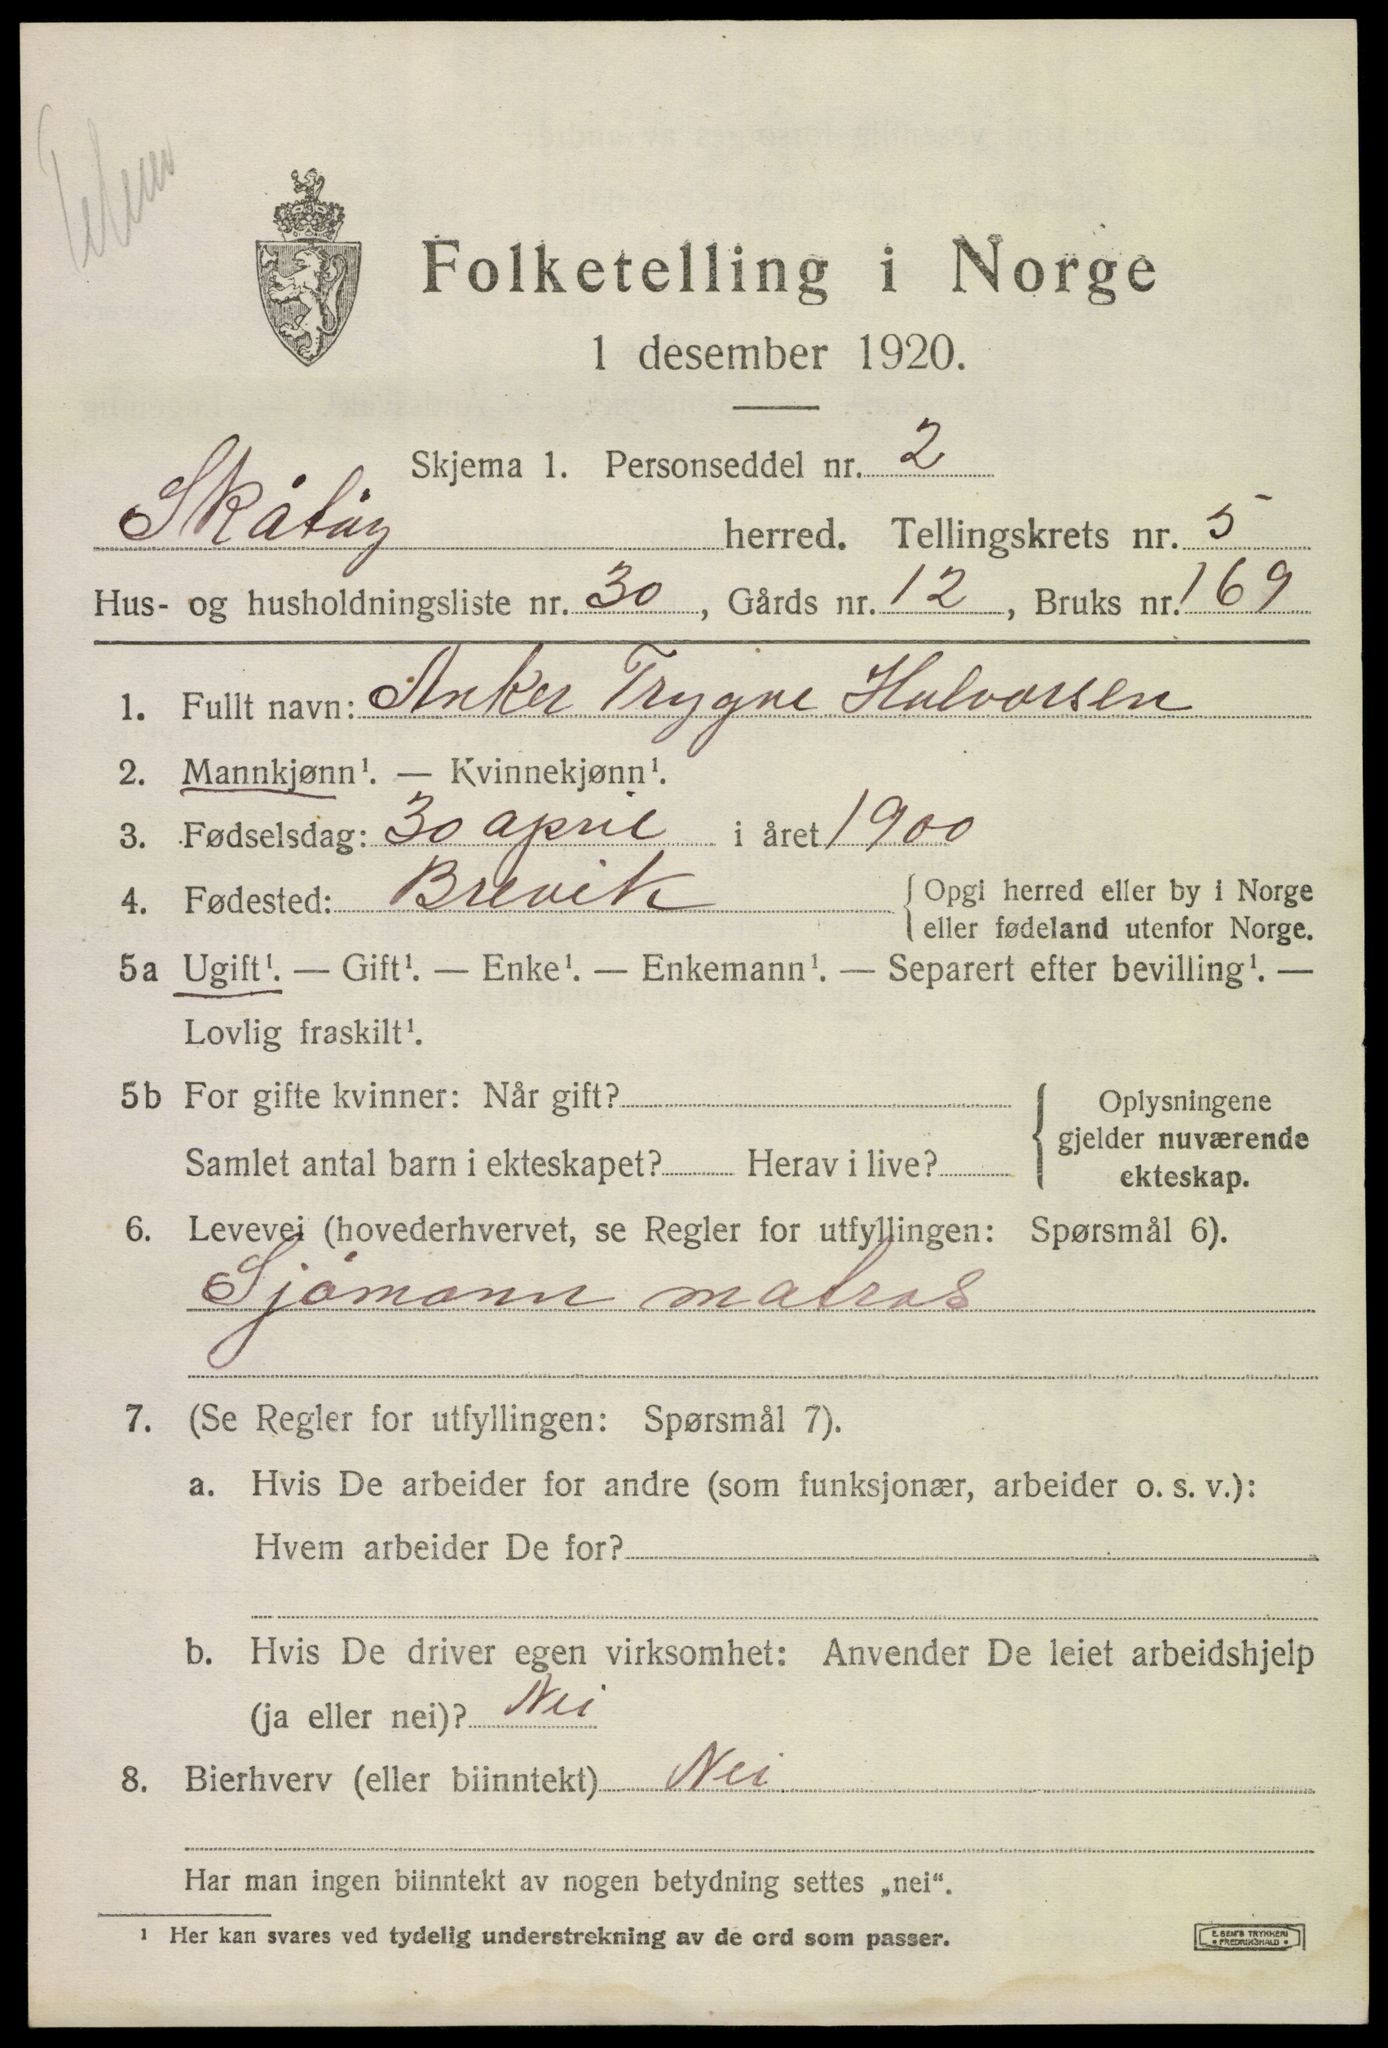 Telem
Folketelling i Norge
1 desember 1920.
Skjema 1. Personseddel nr. 2
Skåtøy herred. Tellingskrets nr. 5
Hus- og husholdningsliste nr. 30, Gårds nr. 12, Bruks nr. 169
1. Fullt navn: Anker Trygve Halvorsen
2. Mannkjønn¹. — Kvinnekjønn¹.
3. Fødselsdag: 30 april i året 1900
4. Fødested: Brevik { Opgi herred eller by i Norge
eller fødeland utenfor Norge.
5a Ugift¹. — Gift¹. — Enke¹. — Enkemann¹. — Separert efter bevilling¹. —
Lovlig fraskilt¹.
5b For gifte kvinner: Når gift?
Samlet antal barn i ekteskapet? Herav i live?
{ Oplysningene
gjelder nuværende
ekteskap.
6. Levevei (hovederhvervet, se Regler for utfyllingen: Spørsmål 6).
Sjømann matros
7. (Se Regler for utfyllingen: Spørsmål 7).
a. Hvis De arbeider for andre (som funksjonær, arbeider o. s. v.):
Hvem arbeider De for?
b. Hvis De driver egen virksomhet: Anvender De leiet arbeidshjelp
(ja eller nei)? Nei
8. Bierhverv (eller biinntekt) Nei
Har man ingen biinntekt av nogen betydning settes „nei“.
¹ Her kan svares ved tydelig understrekning av de ord som passer.
E. SEM'S TRYKKERI
• FREDRIKSHALD •